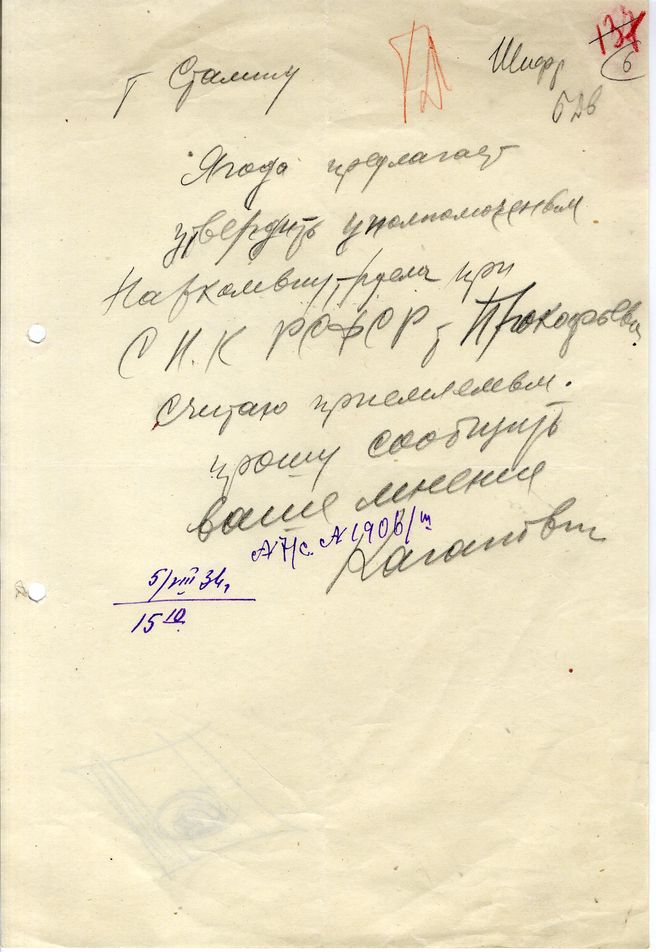 137
6
Шифр
т Сталину
Ягода предлагает
утвердить уполномоченым
Наркомвнутрдела при
С Н.К РСФСР т Прокофьева
Считаю приемлемым.
прошу сообщить
ваше мнение
Каганович
5/VIII 34г
15 10